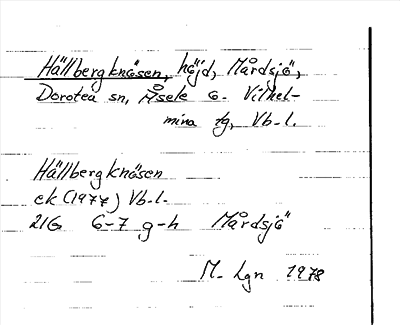 Hällbergknösen, höjd, Mårdsjö,
Dorotea sn, Åsele o. Vilhel-
mina tg, Vb. l.
Hällbergknösen
ek (1977) Vb. l.
21G 6-7 g-h Mårdsjö
M. Lgn 1978